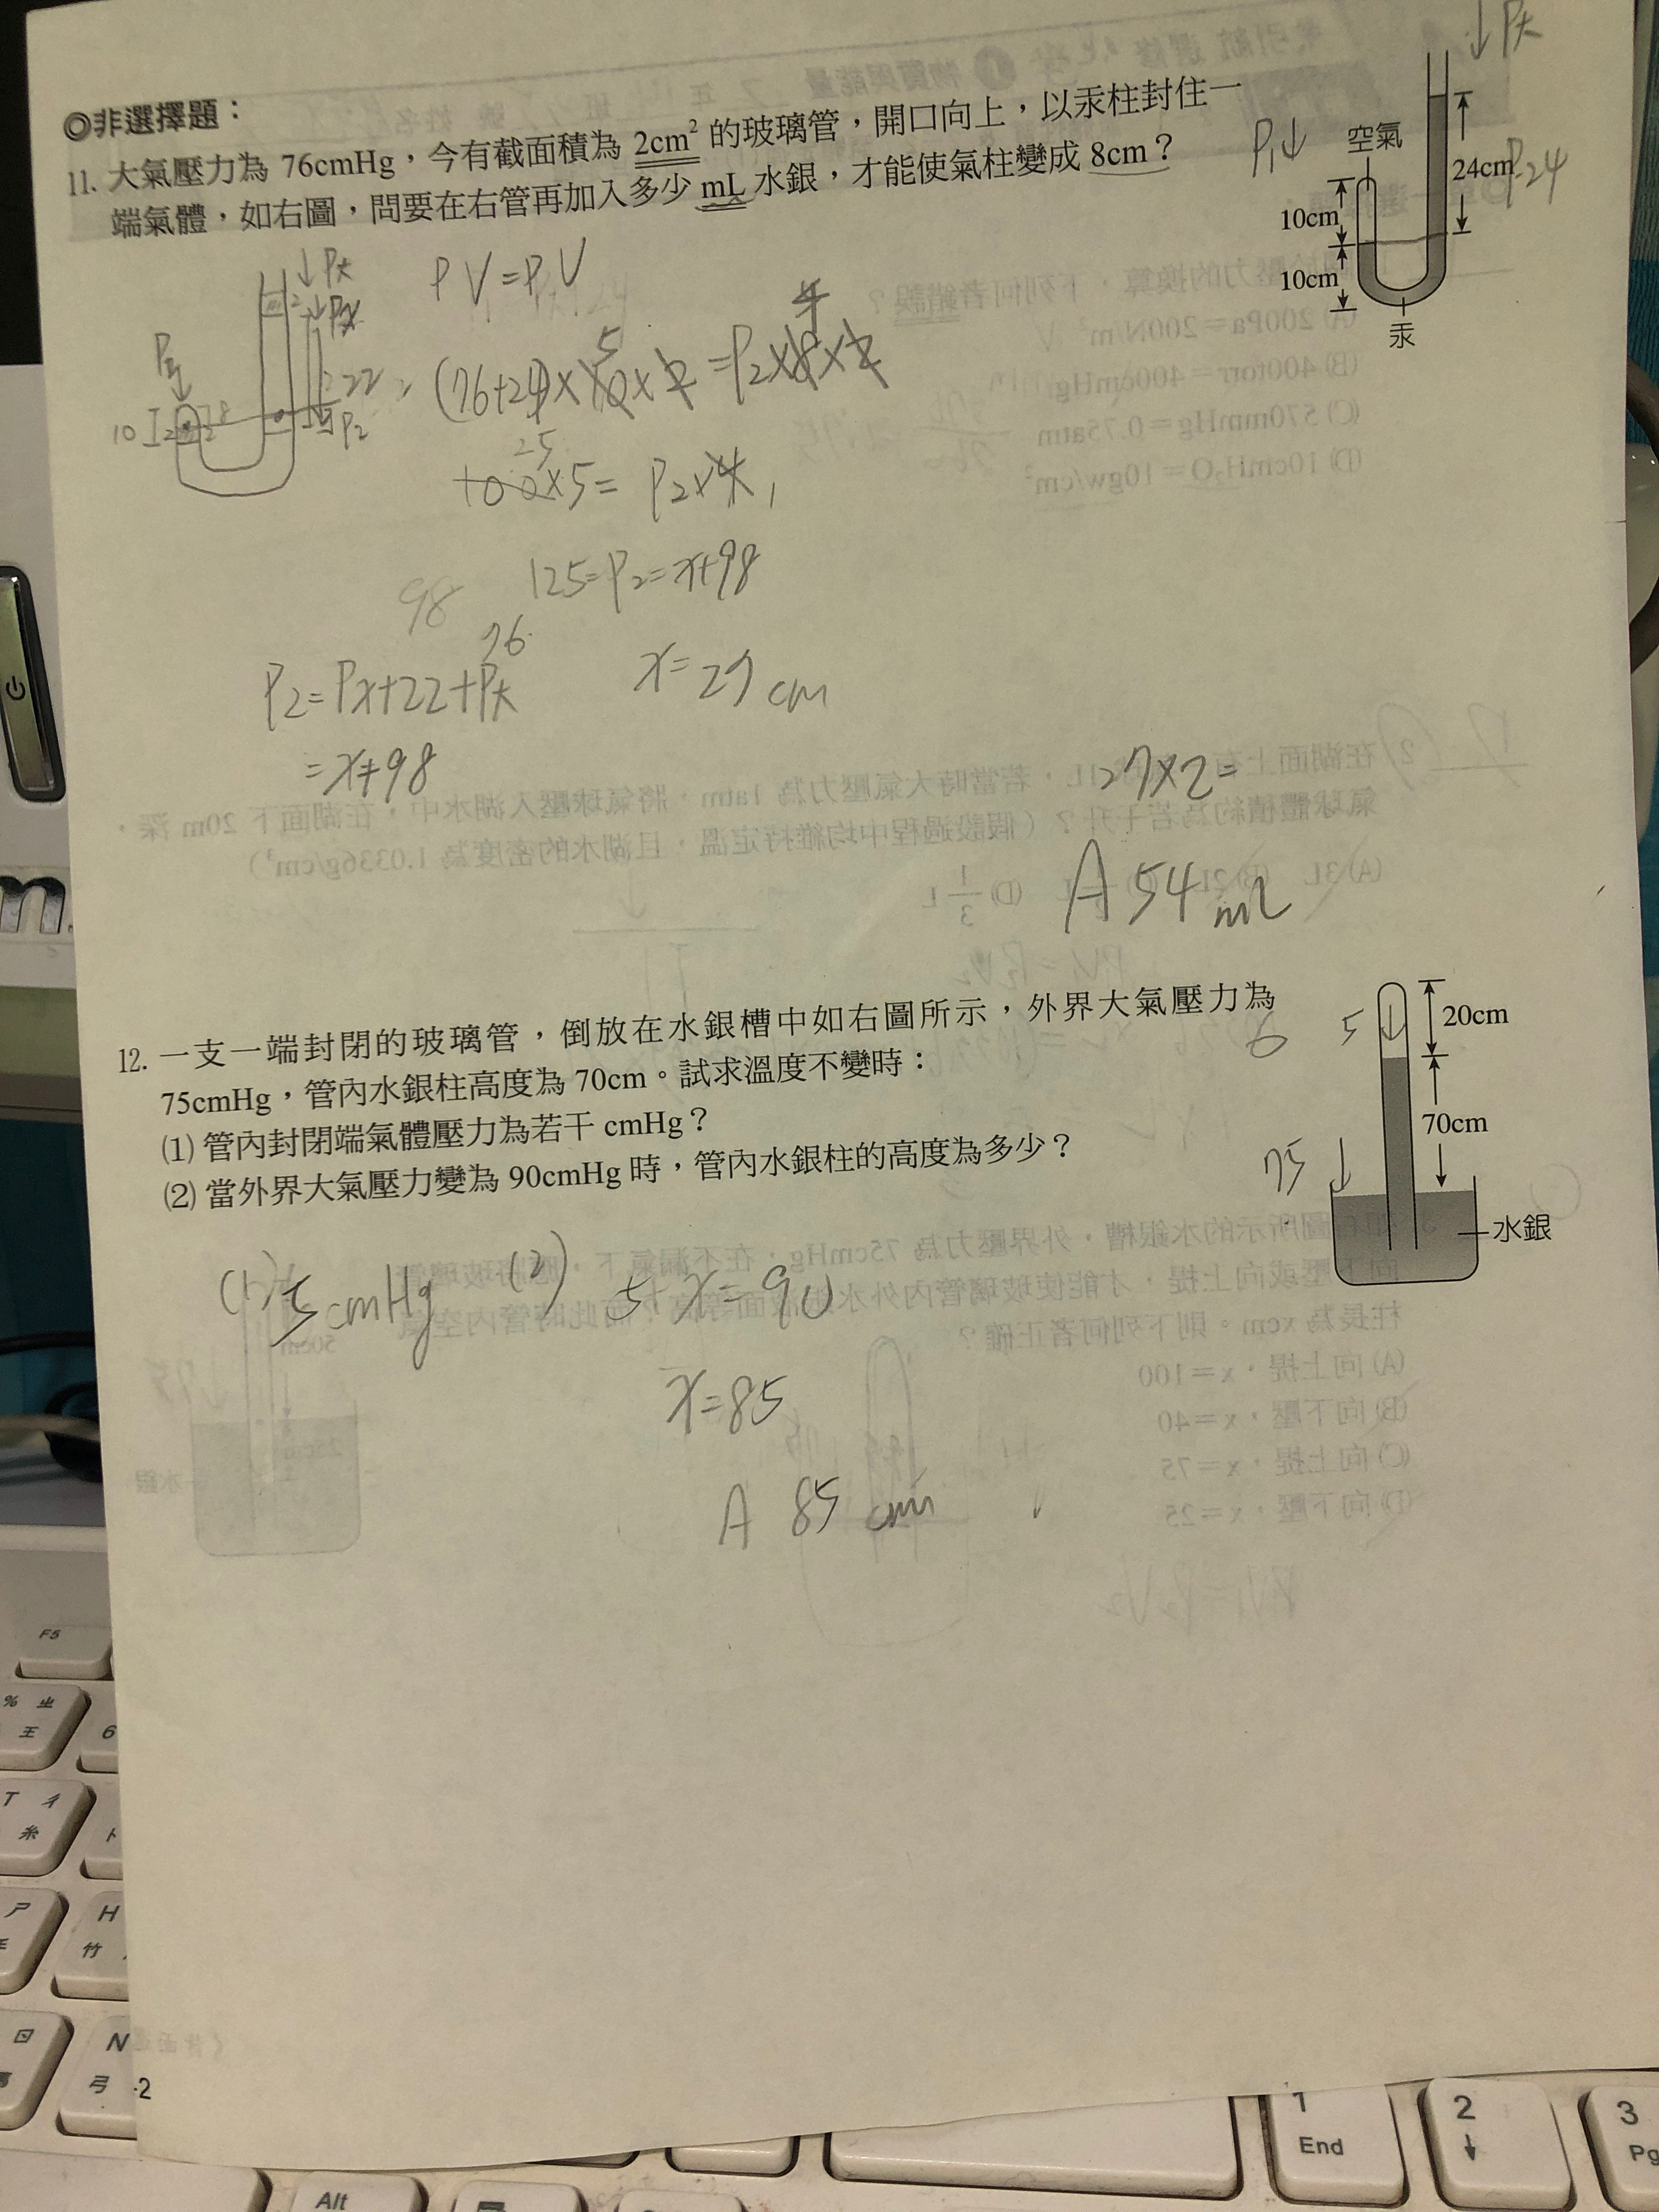 ◎非選擇題：
11. 大氣壓力為 76cmHg，今有截面積為 2cm² 的玻璃管，開口向上，以汞柱封住一
端氣體，如右圖，問要在右管再加入多少 mL 水銀，才能使氣柱變成 8cm？
↓P大
P₁↓
空氣
24cm
P-24
10cm
10cm
汞
↓P大
↓Px
22
10
8
2
P₂
PV=PV
(76+24)×10×2=P₂×8×2
5
4
25
100×5=P₂×4
98
125=P₂=x+98
76
P₂=Px+22+P大
=x+98
x=27cm
27×2=
A 54mL
12. 一支一端封閉的玻璃管，倒放在水銀槽中如右圖所示，外界大氣壓力為
75cmHg，管內水銀柱高度為 70cm。試求溫度不變時：
⑴ 管內封閉端氣體壓力為若干 cmHg？
⑵ 當外界大氣壓力變為 90cmHg 時，管內水銀柱的高度為多少？
6
5
20cm
70cm
75↓
水銀
(1) 5cmHg
(2) 5+x=90
x=85
A 85cm
-2
F5
%
王
6
T
糸
H
竹
N
弓
Alt
1
End
2
3
Pg